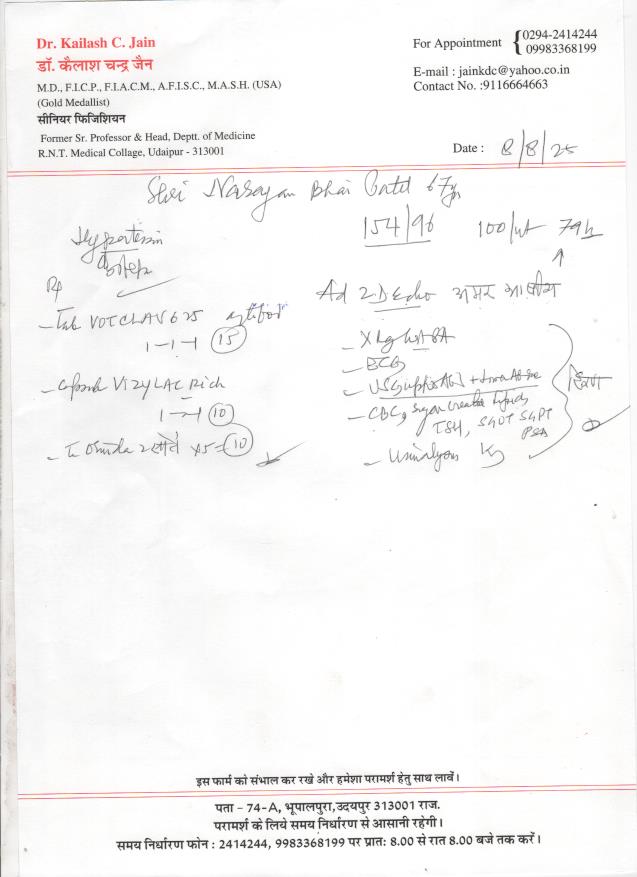 Dr. Kailash C. Jain
डॉ. कैलाश चन्द्र जैन
M.D., F.I.C.P., F.I.A.C.M., A.F.I.S.C., M.A.S.H. (USA)
(Gold Medallist)
सीनियर फिजिशियन
Former Sr. Professor & Head, Deptt. of Medicine
R.N.T. Medical Collage, Udaipur - 313001
For Appointment { 0294-2414244
09983368199
E-mail : jainkdc@yahoo.co.in
Contact No. :9116664663
Date : 8/8/25
Shri Narayan Bhai Patel 67
154/96 100/ 79
Rp
Tab VOTCLAV 625
1-1-1 (15)
VIZYLAC Rich
1-1 (10)
2 x5=(10)
Ad 2-D Echo अमर
X
ECG
USG
CBC, Sugar Creat
TSH, SGOT SGPT
PSA
इस फार्म को संभाल कर रखे और हमेशा परामर्श हेतु साथ लावें।
पता – 74-A, भूपालपुरा,उदयपुर 313001 राज.
परामर्श के लिये समय निर्धारण से आसानी रहेगी।
समय निर्धारण फोन : 2414244, 9983368199 पर प्रातः 8.00 से रात 8.00 बजे तक करें।